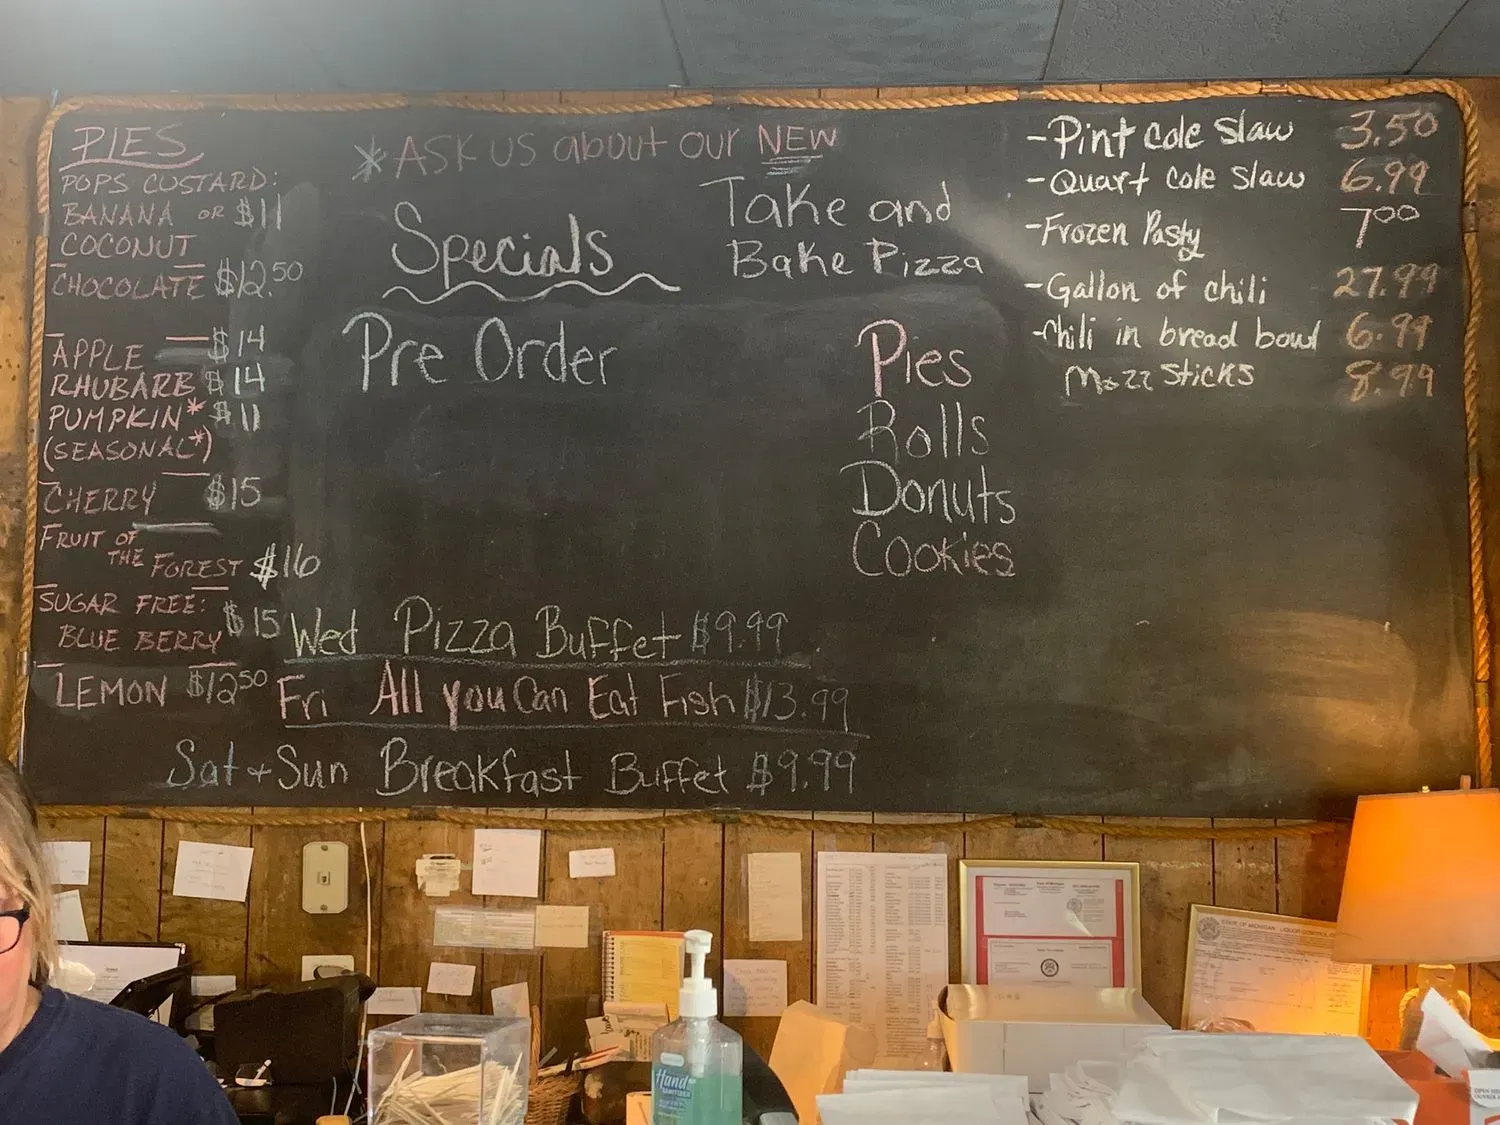 PIES
POPS CUSTARD:
BANANA OR $11
COCONUT
CHOCOLATE $12.50
APPLE $14
RHUBARB $14
PUMPKIN* $11
(SEASONAL*)
CHERRY $15
FRUIT OF
THE FOREST $16
SUGAR FREE:
BLUE BERRY $15
LEMON $12.50
* ASK US about our NEW
Take and
Bake Pizza
Specials
Pre Order
Pies
Rolls
Donuts
Cookies
Wed Pizza Buffet $9.99
Fri All you Can Eat Fish $13.99
Sat + Sun Breakfast Buffet $9.99
-Pint cole slaw 3.50
-Quart cole slaw 6.99
-Frozen Pasty 7.00
-Gallon of chili 27.99
-Chili in bread bowl 6.99
Mozz Sticks 8.99
STATE OF MICHIGAN LIQUOR CONTROL
Hand
SANITIZER